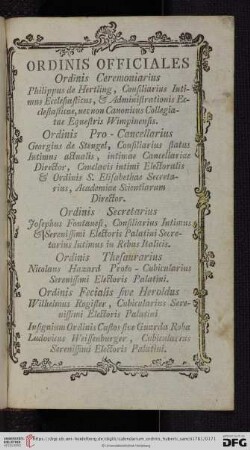 ORDINIS OFFICIALES
Ordinis Ceremoniarius
Philippus de Hertling, Consiliarius Inti-
mus Ecclesiasticus, & Administrationis Ec-
clesiasticae, nec non Canonicus Collegia-
tus Equestris Wimpinensis.
Ordinis Pro-Cancellarius
Georgius de Stengel, Consiliarius status
Intimus actualis, intimae Cancellariae
Director, Conclavis intimi Electoralis
& Ordinis S. Elisabethae Secreta-
rius, Academiae Scientiarum
Director.
Ordinis Secretarius
Josephus Fontanesi, Consiliarius Intimus
& Serenissimi Electoris Palatini Secre-
tarius Intimus in Rebus Italicis.
Ordinis Thesaurarius
Nicolaus Hazard Proto-Cubicularius
Serenissimi Electoris Palatini.
Ordinis Fecialis sive Heroldus
Wilhelmus Register, Cubicularius Sere-
nissimi Electoris Palatini
Insignium Ordinis Custos sive Guarda Roba
Ludovicus Weissenburger, Cubicularius
Serenissimi Electoris Palatini.